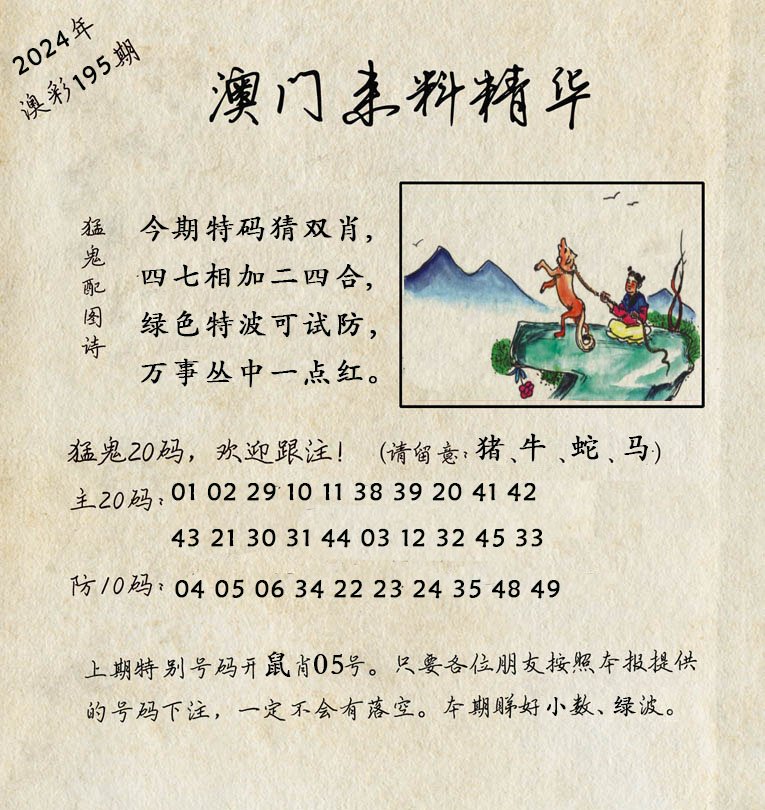 2024年
澳彩195期
澳门来料精华
猛鬼配图诗
今期特码猜双肖，
四七相加二四合，
绿色特波可试防，
万事丛中一点红。
猛鬼20码，欢迎跟注！（请留意：猪、牛、蛇、马）
主20码：01 02 29 10 11 38 39 20 41 42
43 21 30 31 44 03 12 32 45 33
防10码：04 05 06 34 22 23 24 35 48 49
上期特别号码开鼠肖05号。只要各位朋友按照本报提供
的号码下注，一定不会有落空。本期睇好小数、绿波。